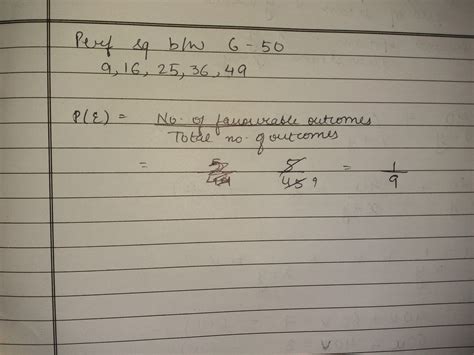 Perf sq b/w 6 - 50
9, 16, 25, 36, 49
P(E) = No. of favourable outcomes
Total no. of outcomes
= 5 5/45 9 = 1/9